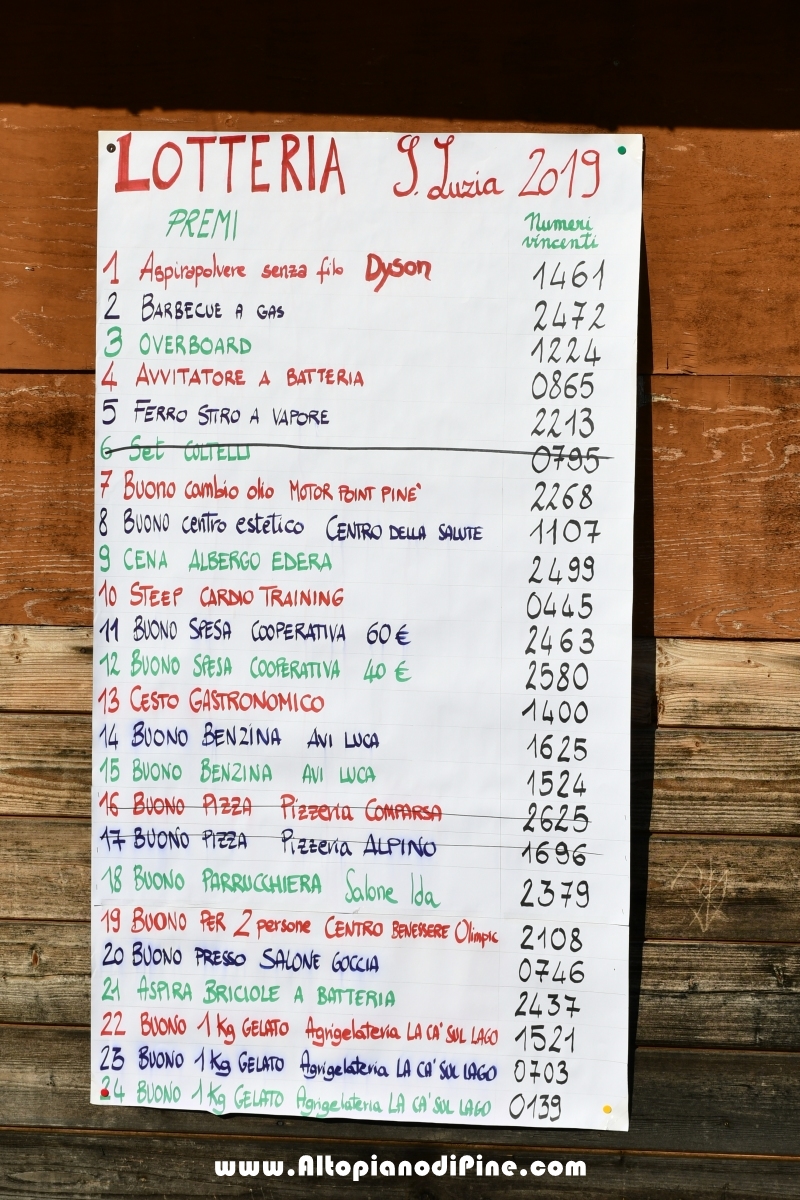 LOTTERIA S. Luzia 2019
PREMI Numeri vincenti
1 Aspirapolvere senza filo Dyson 1461
2 BARBECUE A GAS 2472
3 OVERBOARD 1224
4 AVVITATORE A BATTERIA 0865
5 FERRO STIRO A VAPORE 2213
6 Set COLTELLI 0795
7 Buono cambio olio MOTOR POINT PINE' 2268
8 BUONO centro estetico CENTRO DELLA SALUTE 1107
9 CENA ALBERGO EDERA 2499
10 STEEP CARDIO TRAINING 0445
11 BUONO SPESA COOPERATIVA 60 € 2463
12 BUONO SPESA COOPERATIVA 40 € 2580
13 CESTO GASTRONOMICO 1400
14 BUONO BENZINA AVI LUCA 1625
15 BUONO BENZINA AVI LUCA 1524
16 BUONO PIZZA Pizzeria COMPARSA 2625
17 BUONO PIZZA Pizzeria ALPINO 1696
18 BUONO PARRUCCHIERA Salone Ida 2379
19 BUONO PER 2 persone CENTRO BENESSERE Olimpic 2108
20 BUONO PRESSO SALONE GOCCIA 0746
21 ASPIRA BRICIOLE A BATTERIA 2437
22 BUONO 1 Kg GELATO Agrigelateria LA CA' SUL LAGO 1521
23 BUONO 1 Kg GELATO Agrigelateria LA CA' SUL LAGO 0703
24 BUONO 1 Kg GELATO Agrigelateria LA CA' SUL LAGO 0139
www.AltopianodiPine.com